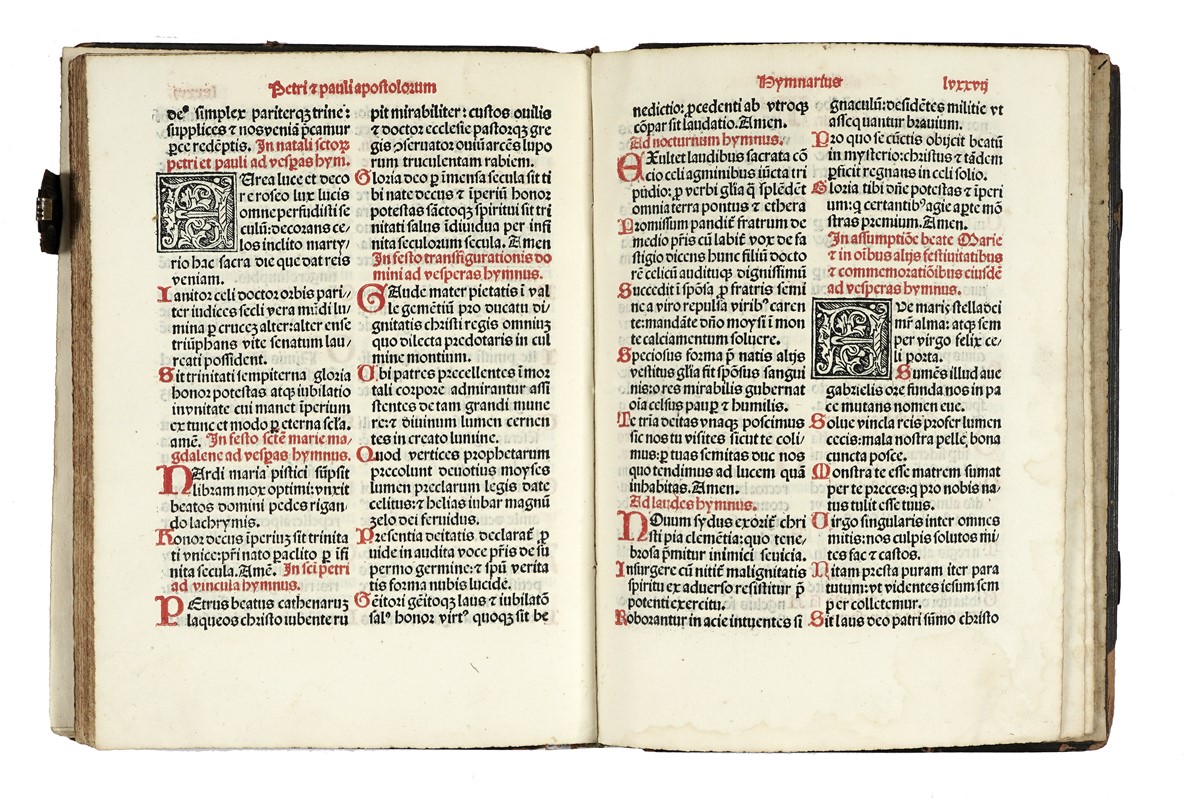 Petri ⁊ pauli apostolorum
deꝰ simplex pariterqꝫ trine:
supplices ⁊ nos veniā p̄camur
ꝑ ce redēptis. In natali sctoꝝ
petri et pauli ad vesꝑas hym.
Aurea luce et deco
re roseo lux lucis
omne perfudisti se
culū: decorans ce-
los inclito marty/
rio hac sacra die que dat reis
veniam.
Ianitor celi doctor orbis pari/
ter iudices secli vera mūdi lu/
mina ꝑ crucez alter: alter ense
triūphans vite senatum lau/
reati possident.
Sit trinitati sempiterna gloria
honor potestas atqꝫ iubilatio
in vnitate cui manet īperium
ex tunc et modo ꝑ eterna secl̄a.
amē. In festo sct̄e marie ma/
gdalene ad vesꝑas hymnus.
NArdi maria pistici sūpsit
libram mox optimi: vnxit
beatos domini pedes rigan/
do lachrymis.
Honor decus īperiuꝫ sit trinita
ti vnice: pr̄i nato paclito ꝑ ifi
nita secula. Amē. In sci petri
ad vincula hymnus.
PEtrus beatus cathenaruꝫ
laqueos christo iubente ru
pit mirabiliter: custos ouilis
⁊ doctor ecclesie pastorqꝫ gre
gis ꝯseruator ouiū arcēs lupo
rum truculentam rabiem.
Gloria deo ꝑ īmensa secula sit ti
bi nate decus ⁊ īperiū honor
potestas sāctoqꝫ spiritui sit tri
nitati salus īdiuidua per infi
nita seculorum secula. Amen
In festo transfigurationis do
mini ad vesperas hymnus.
GAude mater pietatis ī val
le gemētiū pro ducatu di/
gnitatis christi regis omniuꝫ
quo dilecta predotaris in cul
mine montium.
Ubi patres precellentes īmor
tali corpore admirantur assi
stentes de tam grandi mune
re: ⁊ diuinum lumen cernen
tes in creato lumine.
Quod vertices prophetarum
precolunt deuotius moyses
lumen preclarum legis date
celitus: ⁊ helias inbar magnū
zelo dei feruidus.
Presentia deitatis declarat̄ ꝑ
uide in audita voce pr̄is de su
permo germine: ⁊ spū verita
tis forma nubis lucide.
Genitori gēitoqꝫ laus ⁊ iubilatō
salꝰ honor virtꝰ quoqꝫ sit be
Hymnarius lxxxvij
nedictio: ꝓcedenti ab vtroqꝫ
cōpar sit laudatio. Amen.
Ad nocturnum hymnus.
EXultet laudibus sacrata cō
cio celi agminibus iūcta tri
pudio: ꝑ verbi gl̄ia q̄ splēdēt
omnia terra pontus ⁊ ethera
Promissum pandit̄ fratrum de
medio pr̄is cū labit̄ vox de fa
stigio dicens hunc filiū docto
rē celicū audituqꝫ dignissimū
Succedit ī spōsa ꝑ fratris semi
ne a viro repulsa viribꝰ caren
te: mandāte dn̄o moysi ī mon
te calciamentum soluere.
Speciosus forma p̄ natis alijs
vestitus gl̄ia fit spōsus sangui
nis: o res mirabilis gubernat
oīa celsus pauꝑ ⁊ humilis.
Te tria deitas vnaqꝫ poscimus
sic nos tu visites sicut te coli/
mus: ꝑ tuas semitas duc nos
quo tendimus ad lucem quā
inhabitas. Amen.
Ad laudes hymnus.
NOuum sydus exorit̄ chri
sti pia clemētia: quo tene/
brosa p̄mitur inimici seuicia.
Insurgere cū nitit̄ malignitatis
spiritu ex aduerso resistitur p̄
potenti exercitu.
Roborantur in acie intuentes si
gnaculū: desidētes militie vt
assequantur brauium.
Pro quo se cūctis obijcit beatū
in mysterio: christus ⁊ tādem
ꝑficit regnans in celi solio.
Gloria tibi dn̄e potestas ⁊ īperi
um: q̄ certantibꝰ agie aꝑte mō
stras premium. Amen.
In assumptiōe beate Marie
⁊ in oībus alijs festiuitatibus
⁊ commemoratiōibus eiusdē
ad vesperas hymnus.
AVe maris stella dei
mr̄ alma: atqꝫ sem
per virgo felix ce/
li porta.
Sumēs illud aue
gabrielis ore funda nos in pa
ce mutans nomen eue.
Solue vincla reis profer lumen
cecis: mala nostra pelle, bona
cuncta posce.
Monstra te esse matrem sumat
per te preces: q pro nobis na/
tus tulit esse tuus.
Uirgo singularis inter omnes
mitis: nos culpis solutos mi/
tes fac ⁊ castos.
Uitam presta puram iter para
tutum: vt videntes iesum sem
per colletemur.
Sit laus deo patri sūmo christo